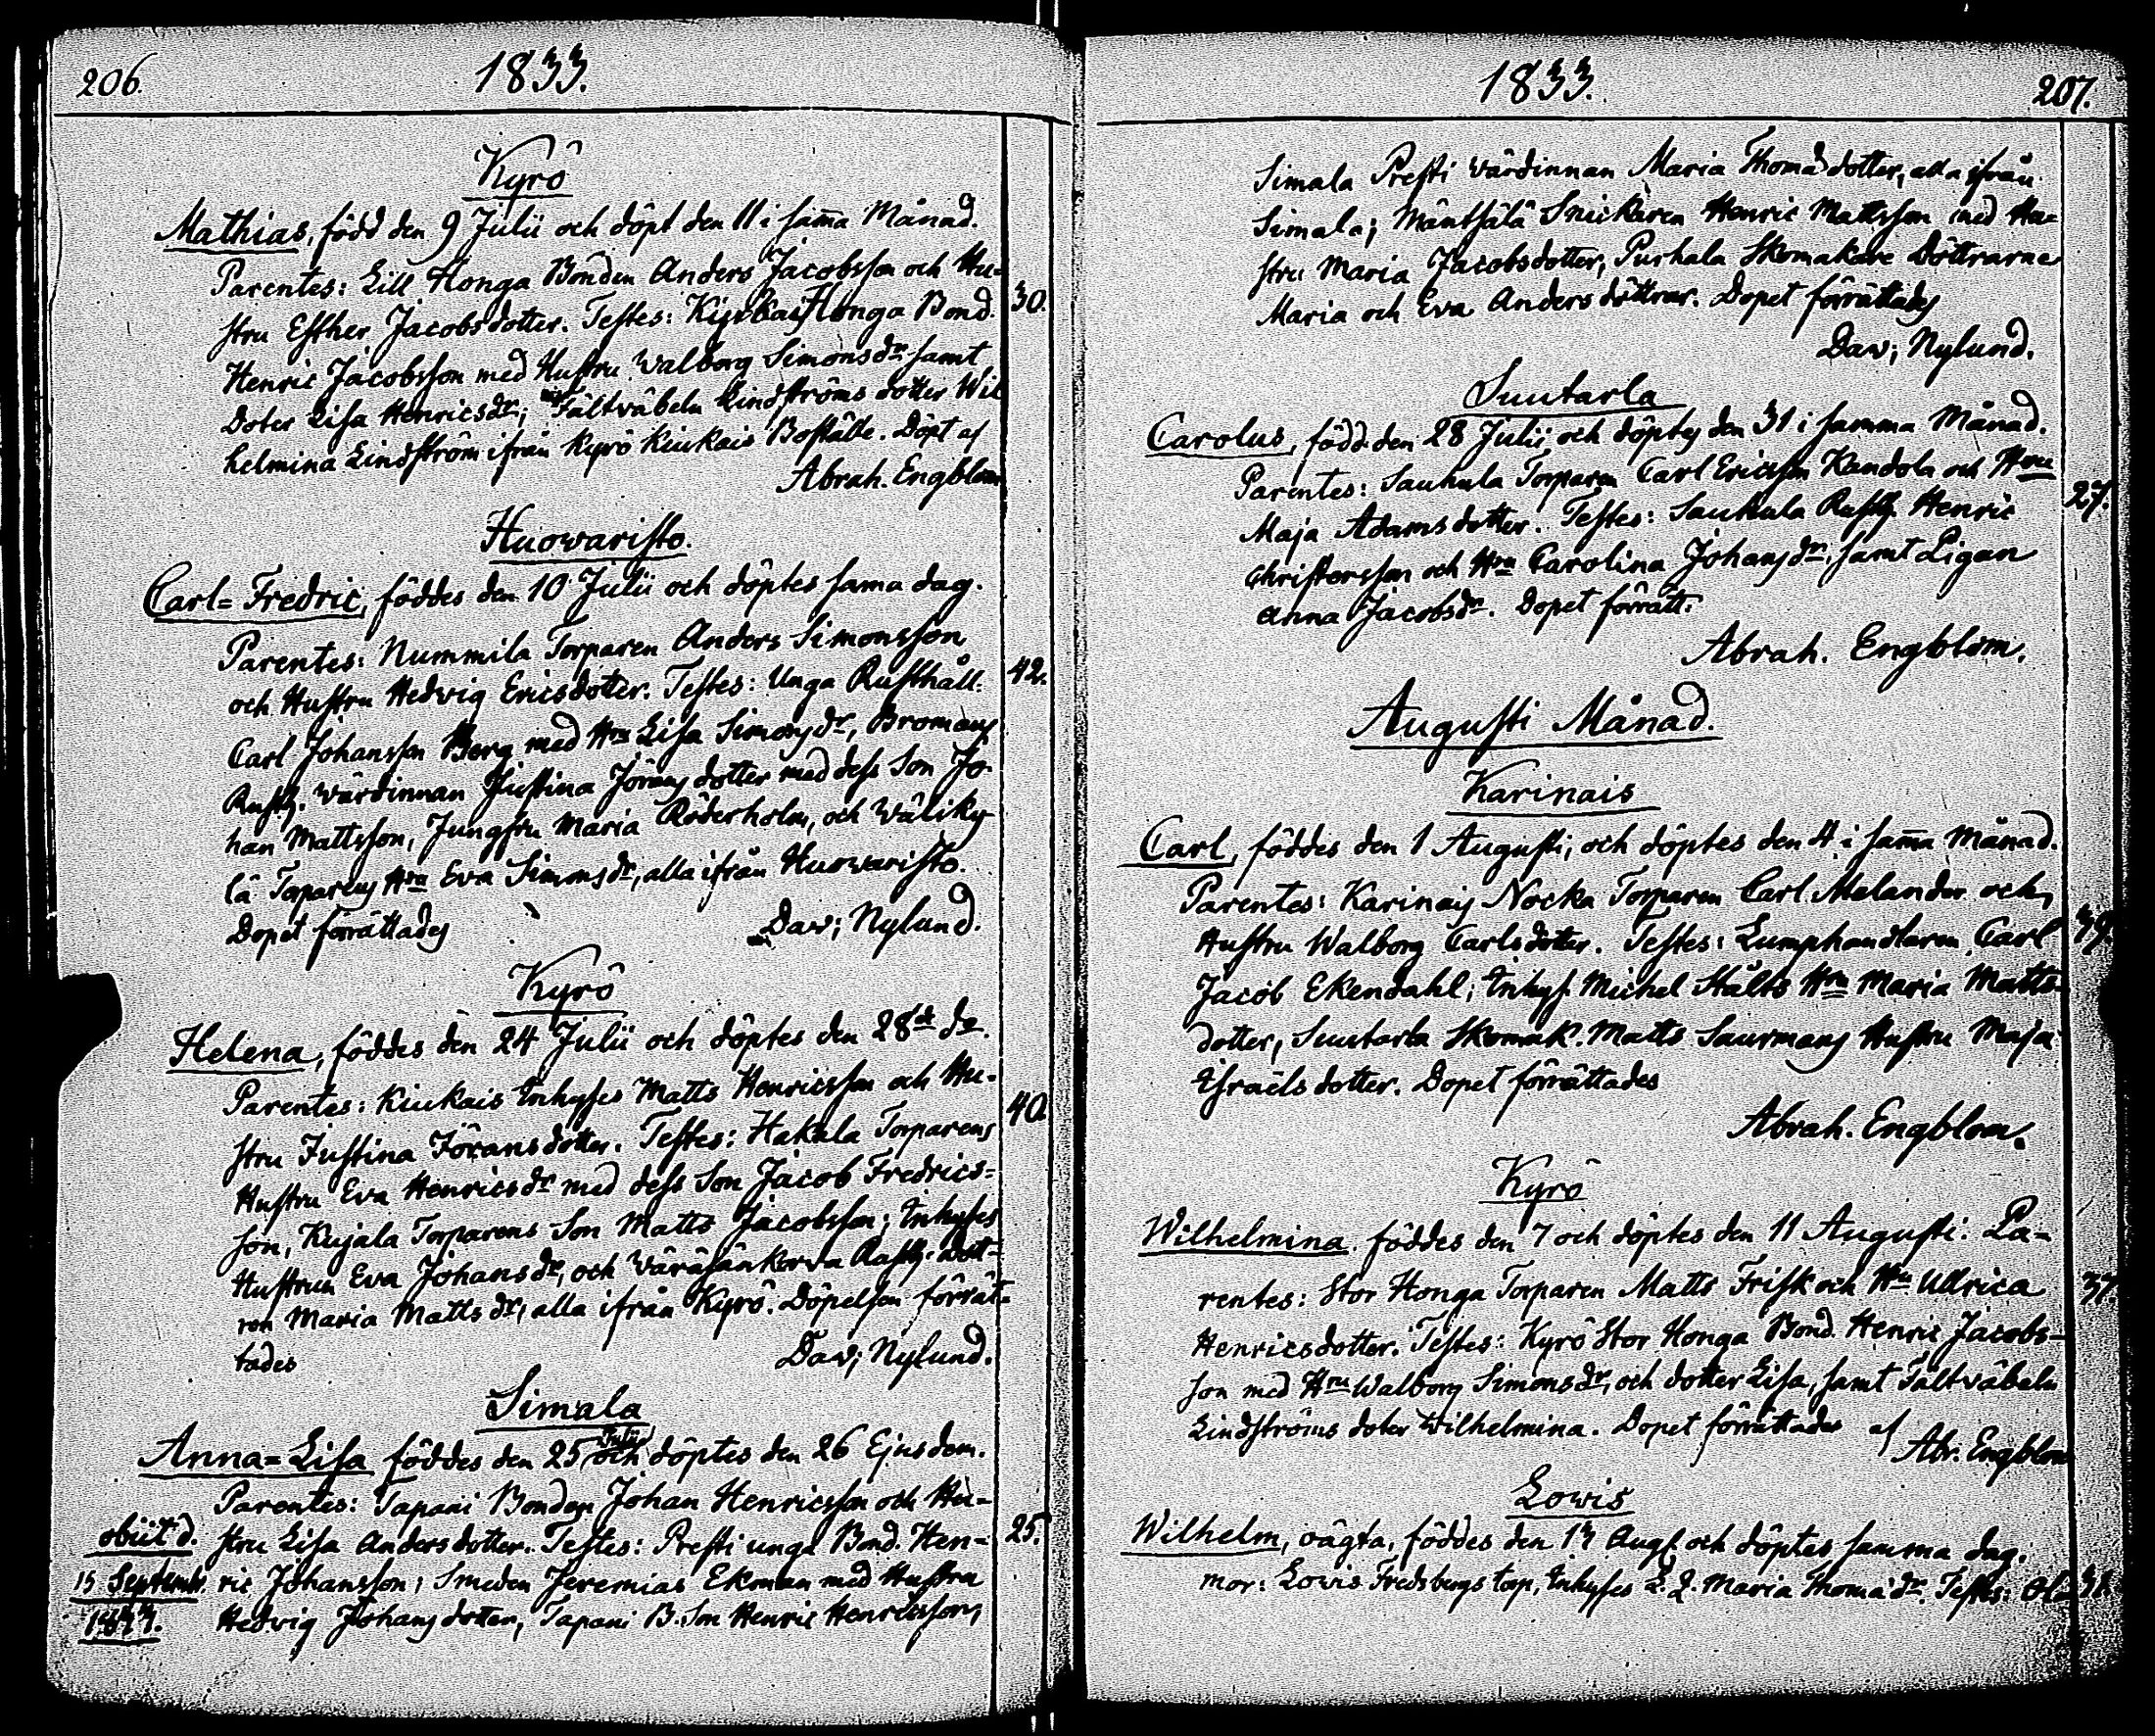 206.
1833.
Kyrö
Mathias, född den 9 Julii och döpt den 11 i sam̄a Månad.
Parentes: Lill Honga Bonden Anders Jacobsson och Hu-
stru Esther Jacobsdotter. Testes: Honga Bond.
30.
Henric Jacobsson med Hustru Walborg Simonsdr samt
Doter Lisa Henricsdr; Fältväbeln Lindströms dotter Wil
helmina Lindström ifrån Kyrö Kiukais Boställe. Döpt af
Abrah. Engblom
Huowaristo.
Carl=Fredric, föddes den 10 Julii och döptes sama dag.
Parentes: Nummila Torparen Anders Simonsson
och Hustru Hedvig Ericsdotter. Testes: Unga Rusthåll.
42.
Carl Johansson Berg med Hru Lisa Simonsdr, Bromans
Rusth. Värdinnan Justina Jörans dotter med dess Son Jo-
han Mattsson, Jungfru Maria Röderholm, och Wäliky-
lä Torparens Hru Eva Simonsdr, alla ifrån Huowaristo.
Dopet förrättades
Dav; Nylund.
Kyrö
Helena, föddes den 24 Julii och döptes den 28de do.
Parentes: Kiukais Inhyses Matts Henricsson och Hu-
stru Justina Jöransdotter. Testes: Hakala Torparens
40.
Hustru Eva Henricsdr med dess Son Jacob Fredrics=
son, Kujala Torparens Son Matts Jacobsson; Inhyses
Hustrun Eva Johansdr, och Väräsänkorva Rusth. Dott-
ren Maria Mattsdr, alla ifrån Kyrö. Döpelsen förrät=
tades
Dav; Nylund.
Simala
Anna=Lisa föddes den 25 Julii och döptes den 26 Ejusdem.
Parentes: Tapani Bonden Johan Henricsson och Hu=
obiit d. stru Lisa Andersdotter. Testes: Presti unga Bond. Hen-
25.
15 Septembr. ric Johansson; Smeden Jeremias Ekman med Hustru
1833. Hedvig Johansdotter, Tapani B. Son Henric Henricsson,
1833.
207.
Simala Presti Värdinnan Maria Thomädotter, alla ifrån
Simala; Mäntsälä Snickaren Henric Mattsson med Hu-
stru Maria Jacobsdotter, Purhala Skomakare Döttrarne
Maria och Eva Andersdöttrar. Dopet förrättades
Dav; Nylund.
Suutarla
Carolus, född den 28 Julii och döptes den 31 i samma Månad.
Parentes: Sauhula Torparen Carl Ericsson Kandola och Hru
27.
Maja Adamsdotter. Testes: Sauhula Rusth. Henric
Christersson och Hru Carolina Johansdr, samt Pigan
Anna Jacobsdr. Dopet förrätt.
Abrah. Engblom.
Augusti Månad.
Karinais
Carl, föddes den 1 Augusti, och döptes den 4 i sam̄a Månad.
Parentes: Karinais Nocka Torparen Carl Melander och
Hustru Walborg Carlsdotter. Testes: Lumphandlaren Carl
39.
Jacob Ekendahl; Inhys. Michel Stålts Hru Maria Matts-
dotter, Suutarla Skomak. Matts Saurmans Hustru Maja
Israëlsdotter. Dopet förrättades
Abrah. Engblom.
Kyrö
Wilhelmina föddes den 7 och döptes den 11 Augusti: Pa-
rentes: Stor Honga Torparen Matts Frisk och Hu Ullrica
37.
Henricsdotter. Testes: Kyrö Stor Honga Bond. Henric Jacobs-
son med Hru Walborg Simonsdr, och dotter Lisa, samt Fältväbeln
Lindströms doter Wilhelmina. Dopet förrättades af
Abr. Engblom
Lowis
Wilhelm, oägta, föddes den 13 Aug. och döptes samma dag.
Mor: Lovis Fredsbergs torp, Inhyses Maria Thomädr. Testes: Ol-